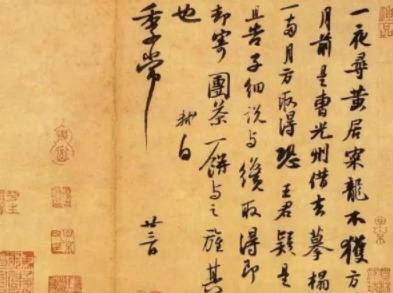 一夜尋黃居寀龍不獲方
月前是曹光州借去摹搨
一兩月方取得恐王君疑是
且告子細說與纔取得即
却寄團茶一餅與之旌其
也 軾白
季常
廿三日